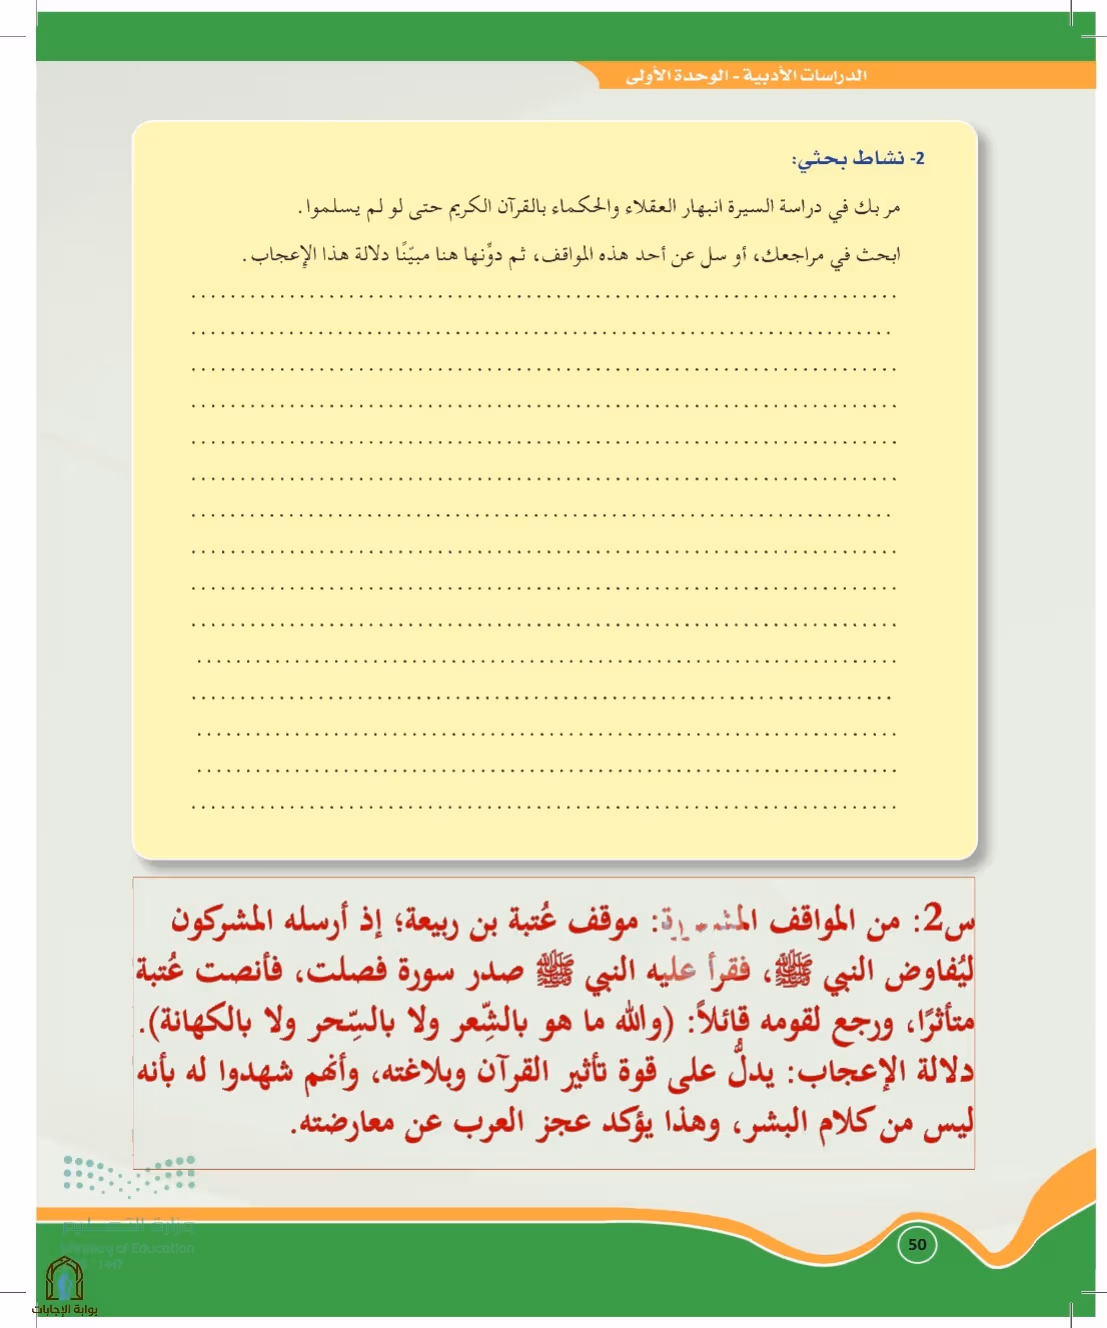 الدراسات الأدبية - الوحدة الأولى
2- نشاط بحثي:
مر بك في دراسة السيرة انبهار العقلاء والحكماء بالقرآن الكريم حتى لو لم يسلموا.
ابحث في مراجعك، أو سل عن أحد هذه المواقف، ثم دوِّنها هنا مبيّنًا دلالة هذا الإعجاب.
س2: من المواقف المشهورة: موقف عُتبة بن ربيعة؛ إذ أرسله المشركون
ليُفاوض النبي ﷺ، فقرأ عليه النبي ﷺ صدر سورة فصلت، فأنصت عُتبة
متأثرًا، ورجع لقومه قائلاً: (والله ما هو بالشِّعر ولا بالسِّحر ولا بالكهانة).
دلالة الإعجاب: يدلُّ على قوة تأثير القرآن وبلاغته، وأنهم شهدوا له بأنه
ليس من كلام البشر، وهذا يؤكد عجز العرب عن معارضته.
وزارة التعليم
Ministry of Education
1447
50
بوابة الإجابات